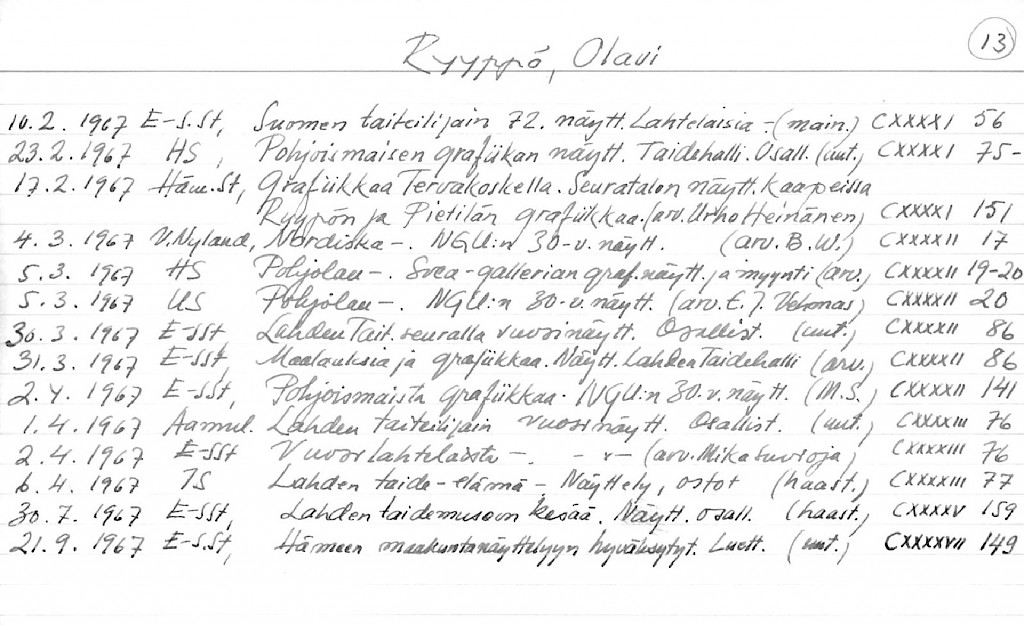 13
Ryyppö, Olavi
10.2. 1967 E-S.St, Suomen taiteilijain 72. näytt. Lahtelaisia - (main.) CXXXXI 56
23.2. 1967 HS, Pohjoismaisen grafiikan näytt. Taidehalli. Osall. (uut.) CXXXXI 75-
17.2. 1967 Häm.St, Grafiikkaa Tervakoskella. Seuratalon näytt.kaapeissa
Ryypön ja Pietilän grafiikkaa. (arv. Urho Heinänen) CXXXXI 151
4.3. 1967 V.Nyland, Nordiska -. NGU:n 30-v. näytt. (arv. B.W.) CXXXXII 17
5.3. 1967 HS Pohjolan -. Svea-gallerian graf.näytt. ja myynti (arv.) CXXXXII 19-20
5.3. 1967 US Pohjolan -. NGU:n 30-v. näytt. (arv. E.J. Vehmas) CXXXXII 20
30.3. 1967 E-SSt, Lahden Tait.seuralla vuosinäytt. Osallist. (uut.) CXXXXII 86
31.3. 1967 E-SSt, Maalauksia ja grafiikkaa. Näytt. Lahden Taidehalli (arv.) CXXXXII 86
2.4. 1967 E-SSt, Pohjoismaista grafiikkaa. NGU:n 30-v. näytt. (M.S.) CXXXXII 141
1.4. 1967 Aamul. Lahden taiteilijain vuosinäytt. Osallist. (uut.) CXXXXIII 76
2.4. 1967 E-SSt Vuosi lahtelaista -. - " - (arv. Mika Suvioja) CXXXXIII 76
6.4. 1967 IS Lahden taide-elämä - Näyttely, ostot (haast.) CXXXXIII 77
30.7. 1967 E-SSt, Lahden taidemuseon kesää. Näytt. osall. (haast.) CXXXXV 159
21.9. 1967 E-S.St, Hämeen maakuntanäyttelyyn hyväksytyt. Luett. (uut.) CXXXXVII 149